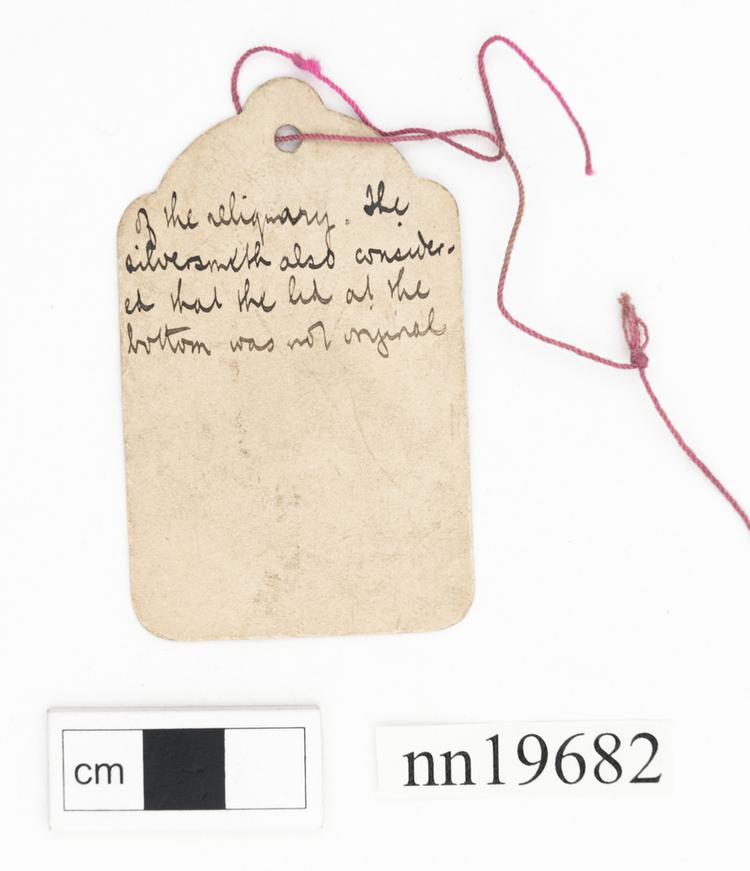 of the reliquary. The
silversmith also consider-
ed that the lid at the
bottom was not original
cm
nn19682